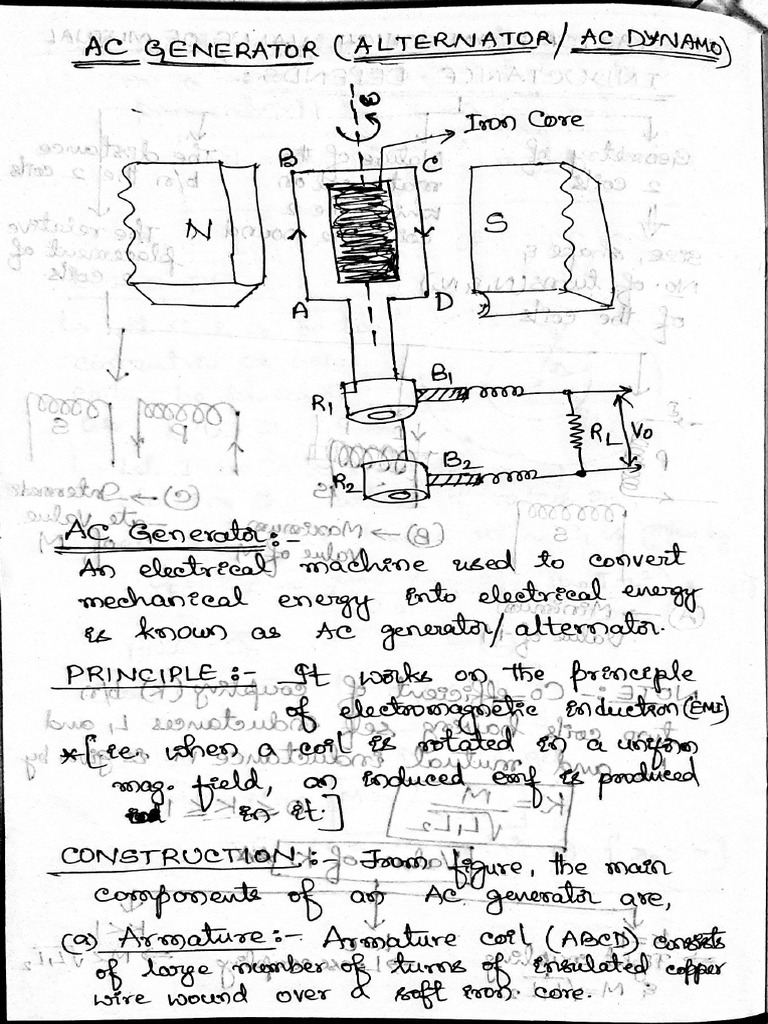 AC GENERATOR (ALTERNATOR/ AC DYNAMO)
ω
Iron Core
B
C
N
S
A
D
R1
B1
RL
V0
R2
B2
AC Generator:-
An electrical machine used to convert
mechanical energy into electrical energy
is known as AC generator/alternator.
PRINCIPLE:- It works on the principle
of electromagnetic induction (EMI)
*[ie. when a coil is rotated in a uniform
mag. field, an induced emf is produced
in it.]
CONSTRUCTION:- From figure, the main
components of an AC generator are,
(a) Armature:- Armature coil (ABCD) consists
of large number of turns of insulated copper
wire wound over a soft iron core.